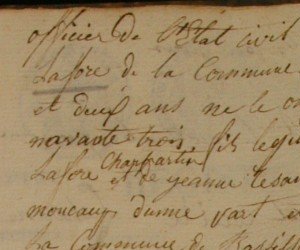 officier de l'Etat civil
Lafore de la Commune
et deux ans ne le o
navante trois fils legi
Chappartin
Lafore et de jeanne lesa
monceau d'une part et
La Commune de